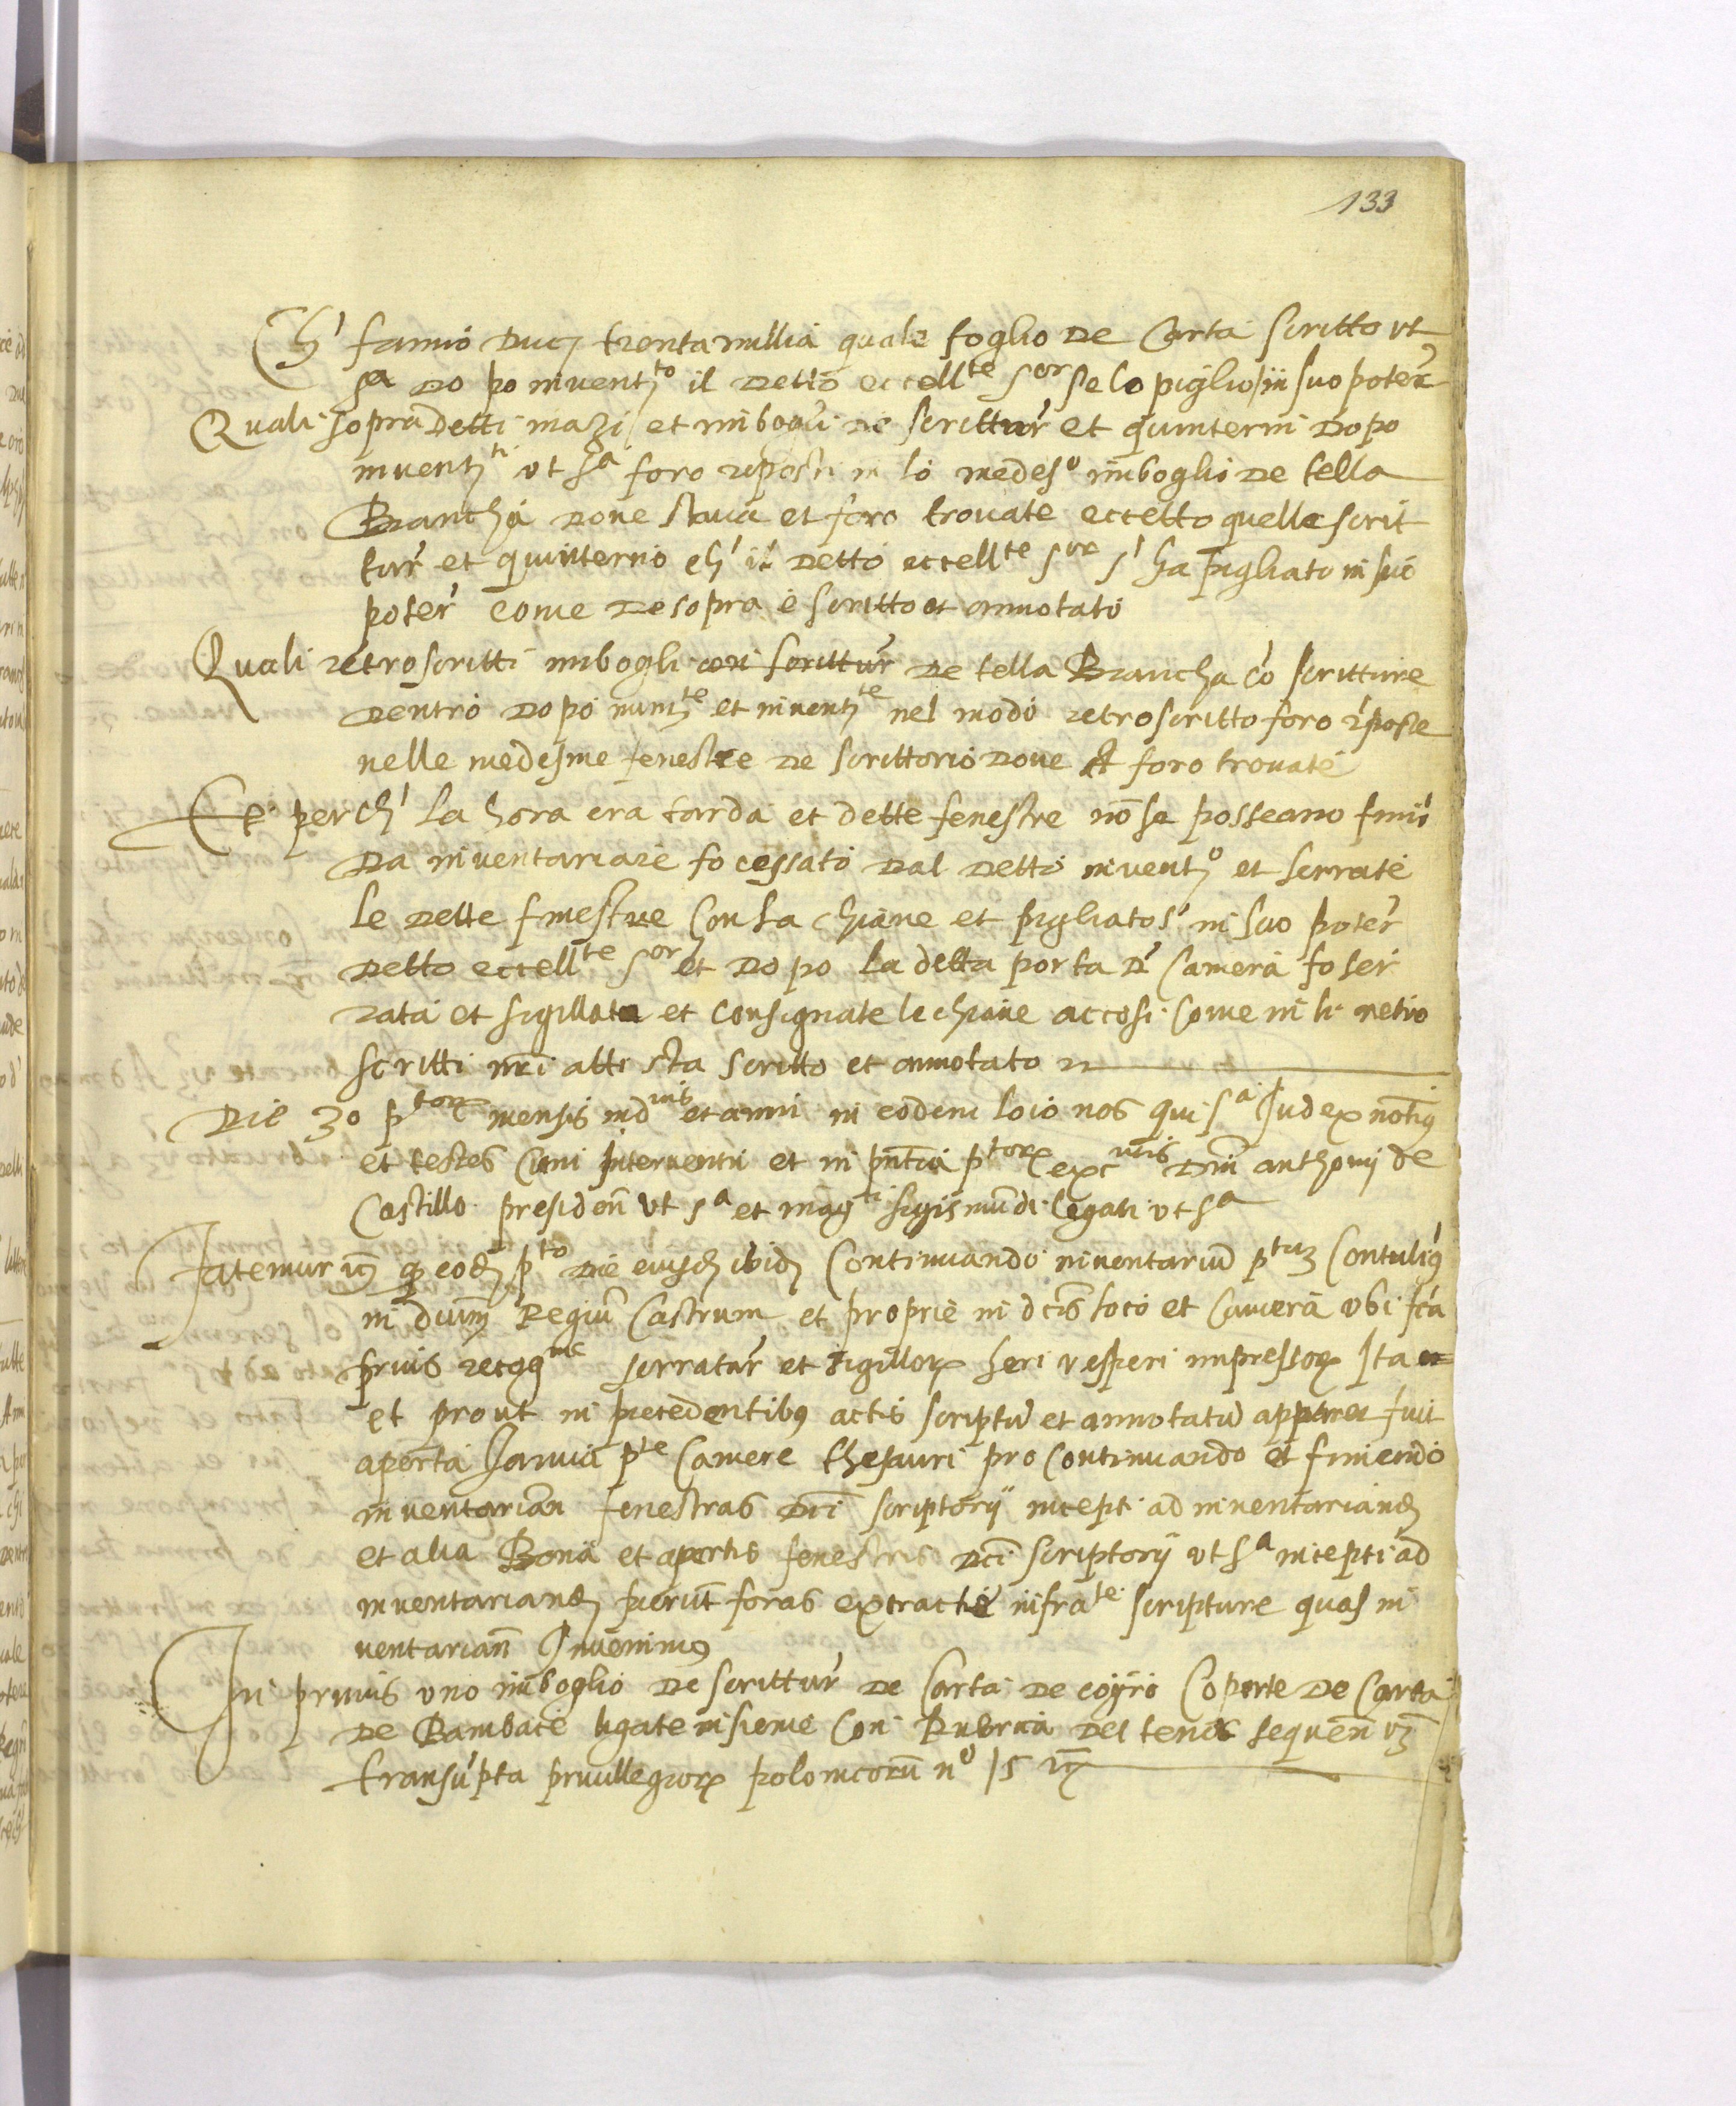 133
Ch' fanno Duc trentamillia quale foglio de Carta scritto ut
sa do po invent.to il detto eccell.te s.or se lo piglio in suo poter'
Quali sopra Detti mazi et imbogli de scrittur' et quinterni Dopo
invent.ti ut s.a foro reposti in lo medes.o imboglio de tella
Biancha dove stava et foro trovate eccetto quelle scrit
tur' et quinterno ch' il detto eccell.te s.or s' ha pigliato in suo
poter' come de sopra è scritto et annotato
Quali retroscritti imbogli con scrittur' de tella Biancha cō scritture
dentro dopo et invent.te nel modo retroscritto foro r'poste
nelle medesme fenestre de scrittorio dove foro trovate
Et perch' la hora era tarda et dette fenestre nō se posseano finir'
da inventariare fo cessato dal detto invent.o et serrate
le dette finestre con la chiave et pigliatos' in suo poter'
detto eccell.te s.or et do po la detta porta d' Camera fo ser
rata et sigillata et consignate le chiave accosi come in li retro
scritti nr̄i atti sta scritto et annotato
Die 30 p.torz mensis ind.nis et anni in eodem loco nos qui s.a Judex notius
et testes cum interventu et in pn̄tia p.torz exc.ntis Dn̄i anthonij de
Castillo presiden̄ ut s.a et mag.ci sigismundi legati ut s.a
Fatemur q eod p.to die eiusd ibid Continuando inventariū p.tum Contulimus
in dictum Regiū Castrum et proprie in dc̄is loco et Camera ubi fc̄a
prius recog.ne serratur' et sigillorz heri vesperi impressorz Ita
et prout in precedentibus actis scriptū et annotatū apparet fuit
aperta Janua p.te Camere thesauri pro Continuando et finiendo
inventarian fenestras Dc̄i scriptorij incepti ad inventariand
et alia Bona et apertis fenestris Dc̄i scriptorij ut s.a incepti ad
inventariand fuerūt foras extracte infra.te scripture quas in
ventarian̄ Invenimus
In primis uno imboglio de scrittur' de Carta de coyro Coperte de Carta
de Bambace ligate insieme Con Rubrica del tenor sequen̄ vz
transūpta privilegiorz polonicorū n.o 15